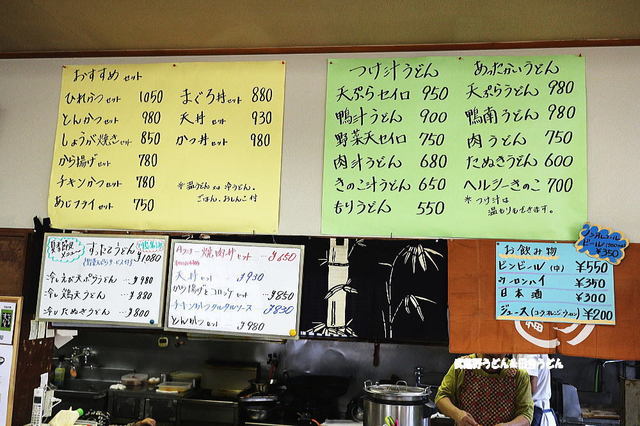 おすすめセット
ひれかつセット 1050
とんかつセット 980
しょうが焼きセット 850
から揚げセット 780
チキンかつセット 780
あじフライセット 750
まぐろ丼セット 880
天丼セット 930
かつ丼セット 980
※温うどん又は冷うどん、
ごはん、おしんこ付
つけ汁うどん
天ぷらセイロ 950
鴨汁うどん 900
野菜天セイロ 750
肉汁うどん 680
きのこ汁うどん 650
もりうどん 550
あったかいうどん
天ぷらうどん 980
鴨南うどん 980
肉うどん 750
たぬきうどん 600
ヘルシーきのこ 700
※つけ汁は
温かいもできます。
すったてうどん ¥1080
冷しえび天ぷらうどん ¥980
冷し鶏天うどん ¥880
冷したぬきうどん ¥800
Aランチ 焼肉丼セット …¥850
天丼セット …¥930
から揚げとコロッケセット …¥850
チキンかつタルタルソース ¥830
とんかつセット ¥980
お飲み物
ビンビール(中) ¥550
ウーロンハイ ¥350
日本酒 ¥300
ジュース(コーラ・オレンジ・ウーロン) ¥200
ノンアルコール
ビール
¥350